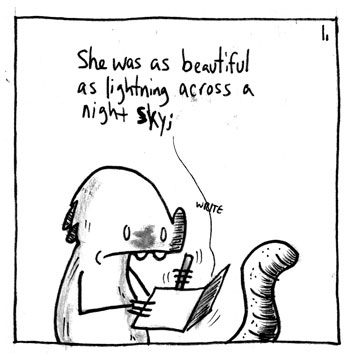 1.
She was as beautiful
as lightning across a
night sky;
WRITE